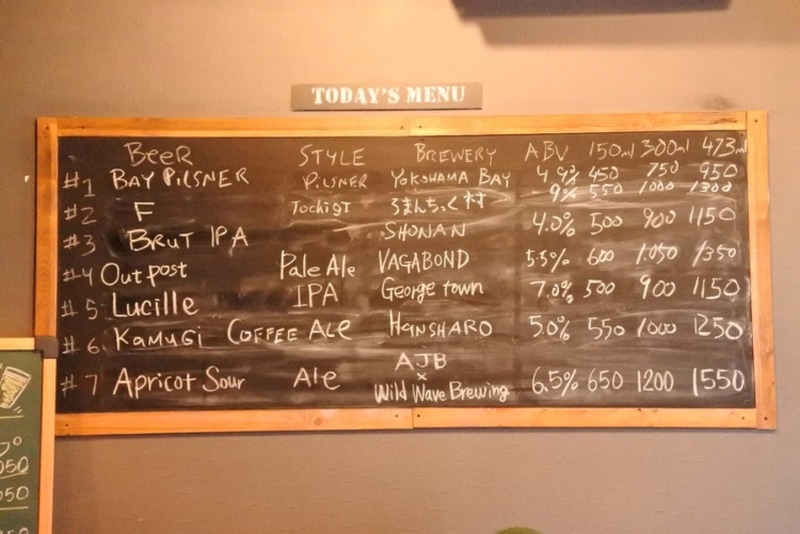 TODAY'S MENU
BEER STYLE BREWERY ABV 150ml 300ml 473ml
#1 BAY PILSNER PILSNER YOKOHAMA BAY 4.9% 450 750 950
#2 F TOCHIGI ろまんちっく村 9% 550 1000 1300
#3 BRUT IPA SHONAN 4.0% 500 900 1150
#4 Outpost Pale Ale VAGABOND 5.5% 600 1,050 1350
#5 Lucille IPA George town 7.0% 500 900 1150
#6 KAMUGI COFFEE ALE HANSHARO 5.0% 550 1000 1250
#7 Apricot Sour Ale AJB
×
Wild Wave Brewing 6.5% 650 1200 1550
050
050